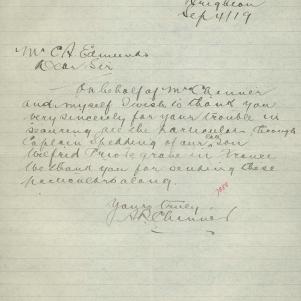 Brighton
Sep 4/19
Mr C. A. Edmunds
Dear Sir
On behalf of Mrs Chinner
and myself I wish to thank you
very sincerely for your trouble in
securing all the particulars through
Captain Spedding of our late son
Wilfrid Price grave in France
We thank you for sending these
particulars along.
Yours truly
A R Chinner